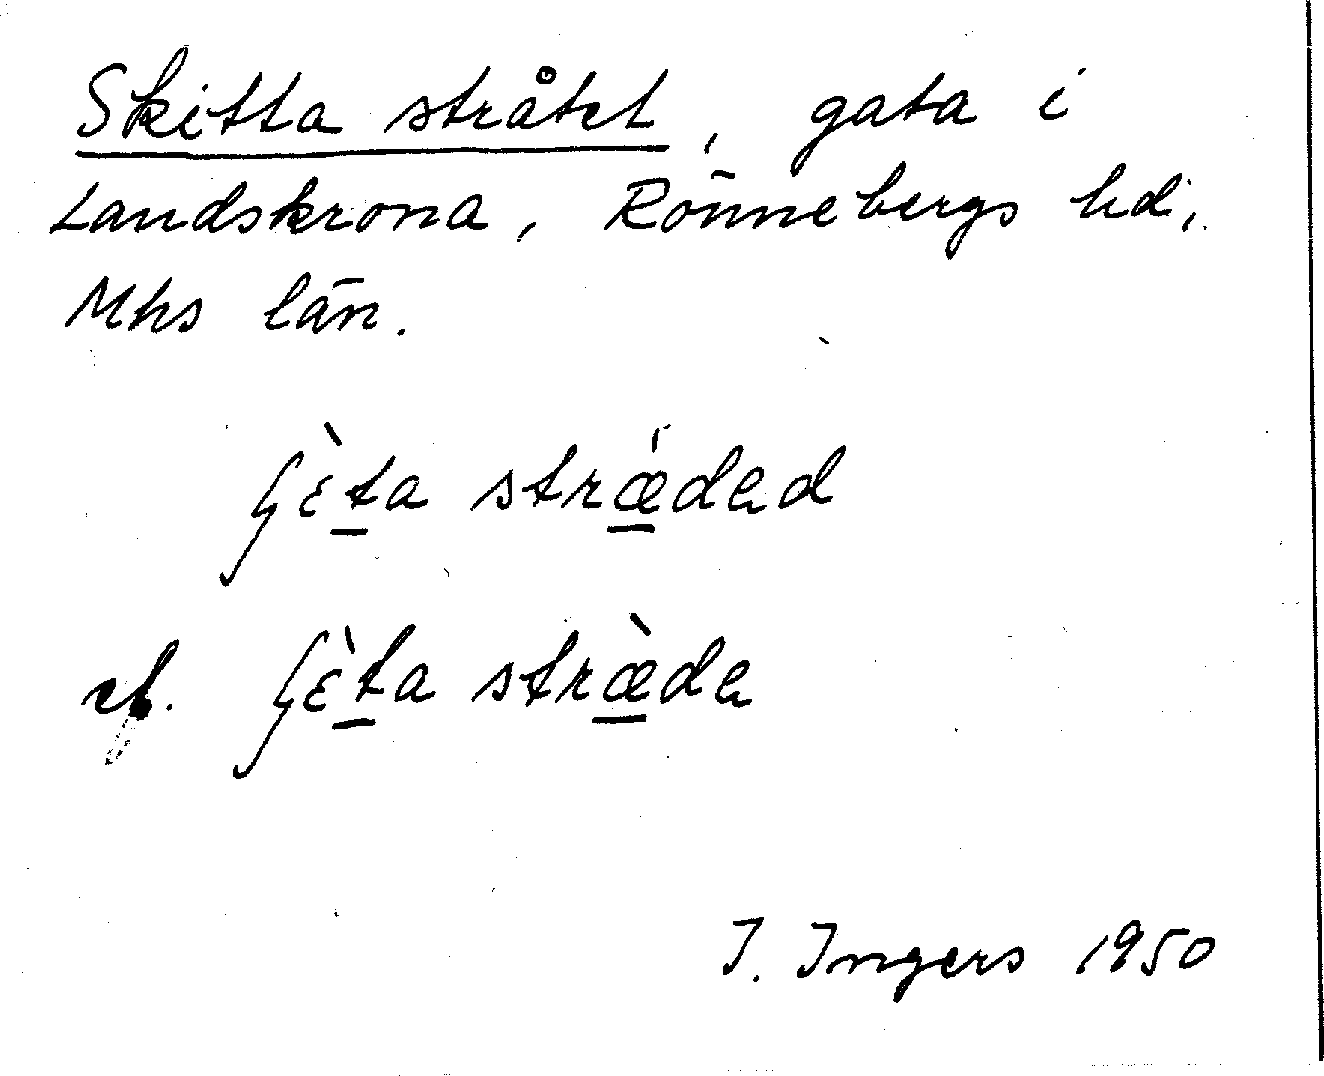 Skitta stråtet, gata i
Landskrona, Rönnebergs hd,
Mhs län.
ʃɛ̀ta strǽdəd
ɛl. ʃɛ̀ta stræ̀də
I. Ingers 1950